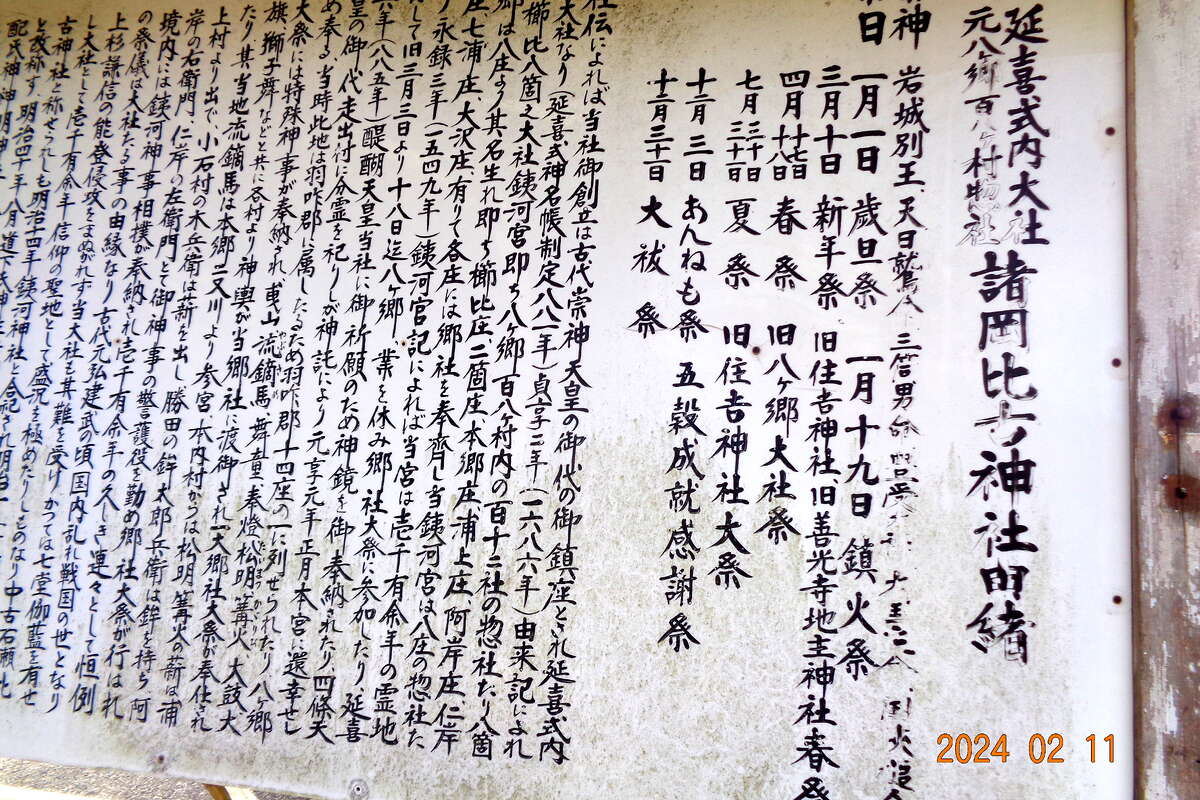 延喜式内大社
元八ヶ郷百八ヶ村惣社
諸岡比古神社由緒
神 岩城別王、天日鷲 三筒男命
日 一月一日 歳旦祭 一月十九日 鎮火祭
三月十日 新年祭 旧住吉神社、旧善光寺地主神社春祭
四月 十七日 十八日 春祭 旧八ヶ郷大社祭
七月 三十日 三十一日 夏祭 旧住吉神社大祭
十二月三日 あんねも祭 五穀成就感謝祭
十二月三十一日 大祓祭
社伝によれば当社御創立は古代崇神天皇の御代の御鎮座とされ延喜式内
大社なり(延喜式神名帳制定八八一年)貞享二年(一六八六年)由来記によれ
櫛比八箇之大社銕河宮即ち八ヶ郷百八ヶ村内の百十二社の惣社たり八箇
郷は八庄より其名生れ即ち櫛比庄二箇庄、本郷庄、浦上庄、阿岸庄、仁岸
庄、七浦庄、大沢庄、有りて各庄には郷社を奉齊し当銕河宮は八庄の惣社た
り永録三年(一五四九年)銕河宮記によれば当宮は壱千有余年の霊地
して旧三月三日より十八日迄八ヶ郷、業を休み郷社大祭に参加したり、延喜
六年八八五年)醍醐天皇当社に御祈願のため神鏡を御奉納されたり、四條天
皇の御代走出村に分霊を祀りしが神託により元享元年正月本宮に還幸せし
め奉る、当時此地は羽咋郡に属したるため羽咋郡十四座の一に列せられたり、八ヶ郷
大祭には特殊神事が奉納され、曳山、流鏑馬、舞童、奉燈、松明、篝火、大鼓、大
旗、獅子舞などと共に各村より神輿が当郷社に渡御され一大郷社大祭が奉仕され
たり、其当地流鏑馬は本郷二又川より参宮、本内村からは松明、篝火の薪は浦
上村より出で、小石村の木兵衛は薪を出し、勝田の鉾太郎兵衛は鉾を持ち阿
岸の右衛門、仁岸の左衛門とて御神事の警護役を勤め郷社大祭が行はれ
境内には銕河神事相撲が奉納され壱千有余年の久しき連々として恒例
の祭儀は大社たる事の由縁なり、古代元弘建武の頃国内乱れ戦国の世となり
上杉謙信の能登侵攻をまぬがれず当大社も其難を受け、かつては七堂伽藍を有せ
し大社として壱千有余年信仰の聖地として盛況を極めたりしものなり中古石瀬比
古神社と称せられしも明治十四年銕河神社と合祀され明治
と改称す、明治四十年八月道下氏神
配氏神神明神
2024 02 11